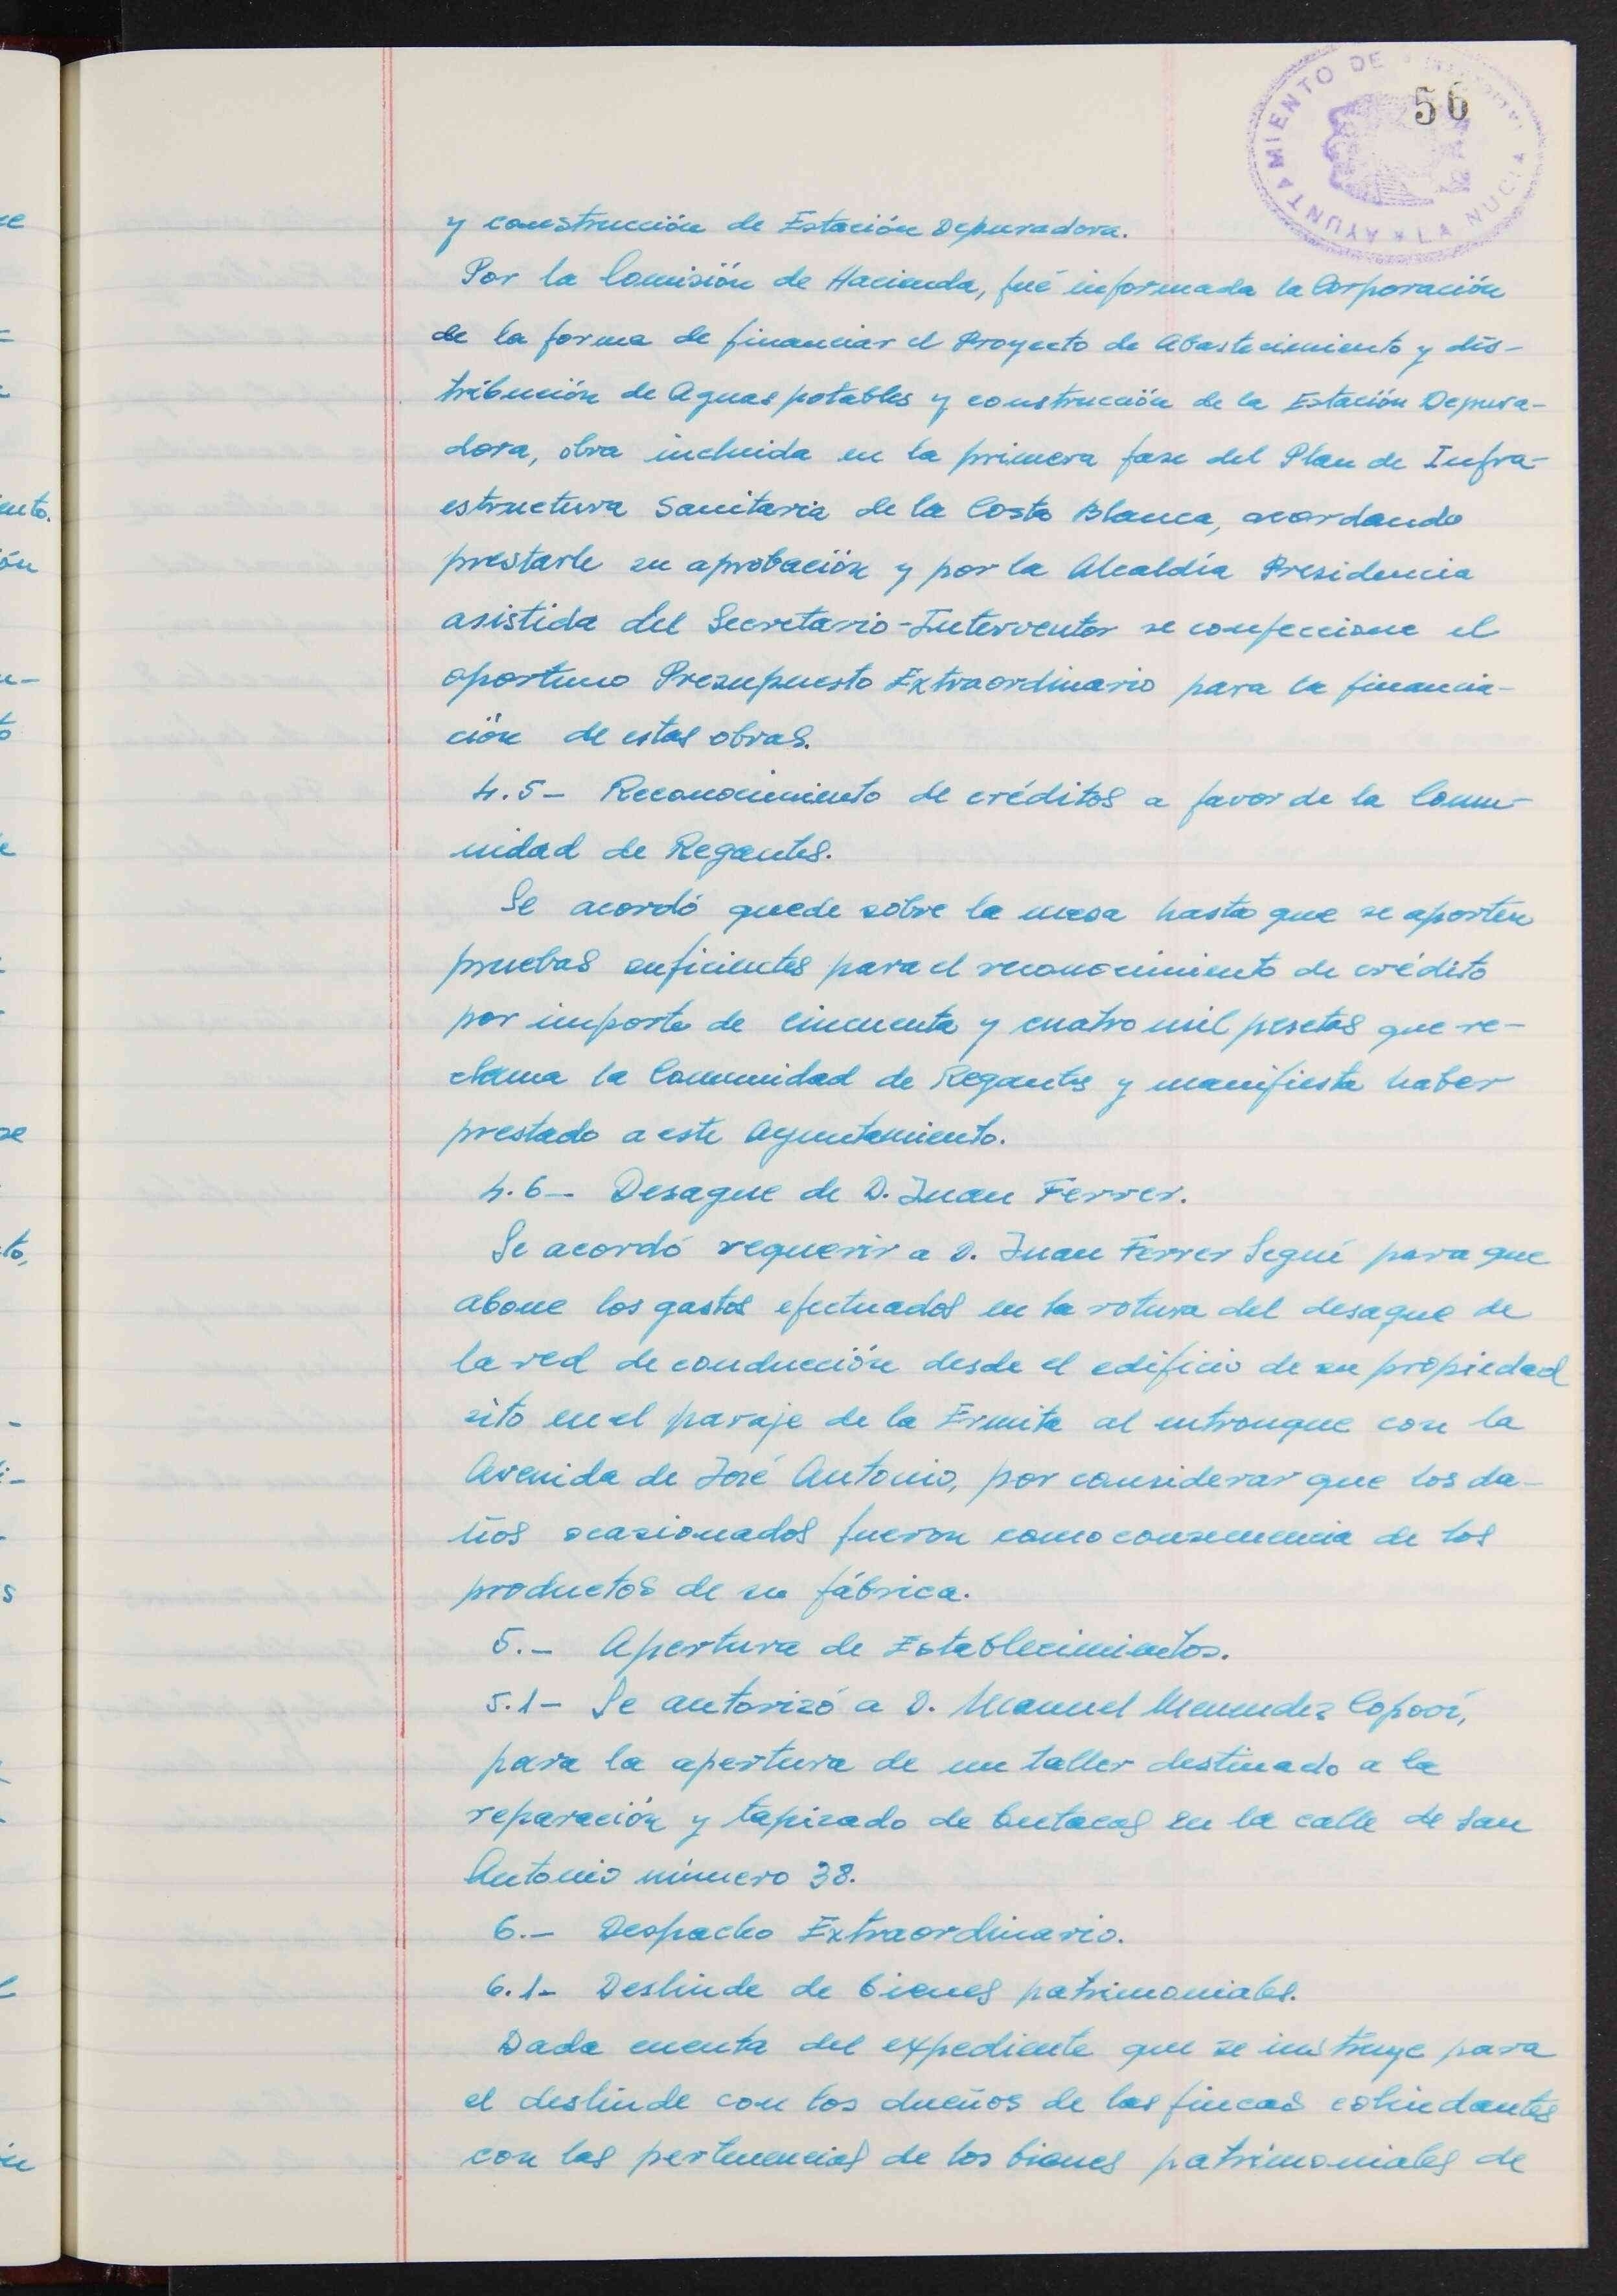 56
AYUNTAMIENTO DE
LA NUCIA
y construcción de Estación Depuradora.
Por la Comisión de Hacienda, fué informada la Corporación
de la forma de financiar el Proyecto de Abastecimiento y dis-
tribución de Aguas potables y construcción de la Estación Depura-
dora, obra incluida en la primera fase del Plan de Infra-
estructura Sanitaria de la Costa Blanca, acordando
prestarle su aprobación y por la Alcaldía Presidencia
asistida del Secretario-Interventor se confeccione el
oportuno Presupuesto Extraordinario para la financia-
ción de estas obras.
4.5- Reconocimiento de créditos a favor de la Comu-
nidad de Regantes.
Se acordó quede sobre la mesa hasta que se aporten
pruebas suficientes para el reconocimiento de crédito
por importe de cincuenta y cuatro mil pesetas que re-
clama la Comunidad de Regantes y manifiesta haber
prestado a este Ayuntamiento.
4.6- Desague de D. Juan Ferrer.
Se acordó requerir a D. Juan Ferrer Seguí para que
abone los gastos efectuados en la rotura del desague de
la red de conducción desde el edificio de su propiedad
sito en el paraje de la Ermita al entronque con la
Avenida de José Antonio, por considerar que los da-
ños ocasionados fueron como consecuencia de los
productos de su fábrica.
5.- Apertura de Establecimientos.
5.1- Se autorizó a D. Manuel
para la apertura de un taller destinado a la
reparación y tapizado de butacas en la calle de San
Antonio número 38.
6.- Despacho Extraordinario.
6.1- Deslinde de bienes patrimoniales.
Dada cuenta del expediente que se instruye para
el deslinde con los dueños de las fincas colindantes
con las pertenencias de los bienes patrimoniales de